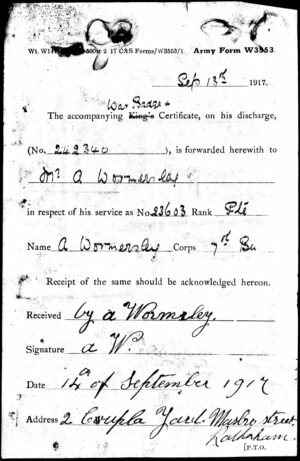 Army Form W3553.
Sep 13th 1917.
War Badge &
The accompanying King's Certificate, on his discharge,
(No. 242340), is forwarded herewith to
Mr A Wormersley
in respect of his service as No. 23603 Rank Pte
Name A Wormersley Corps 7th Bn
Receipt of the same should be acknowledged hereon.
Received by A Wormsley.
Signature A W.
Date 14th of September 1917
Address 2 Yard. Masbro street
Rotherham.
[P.T.O.